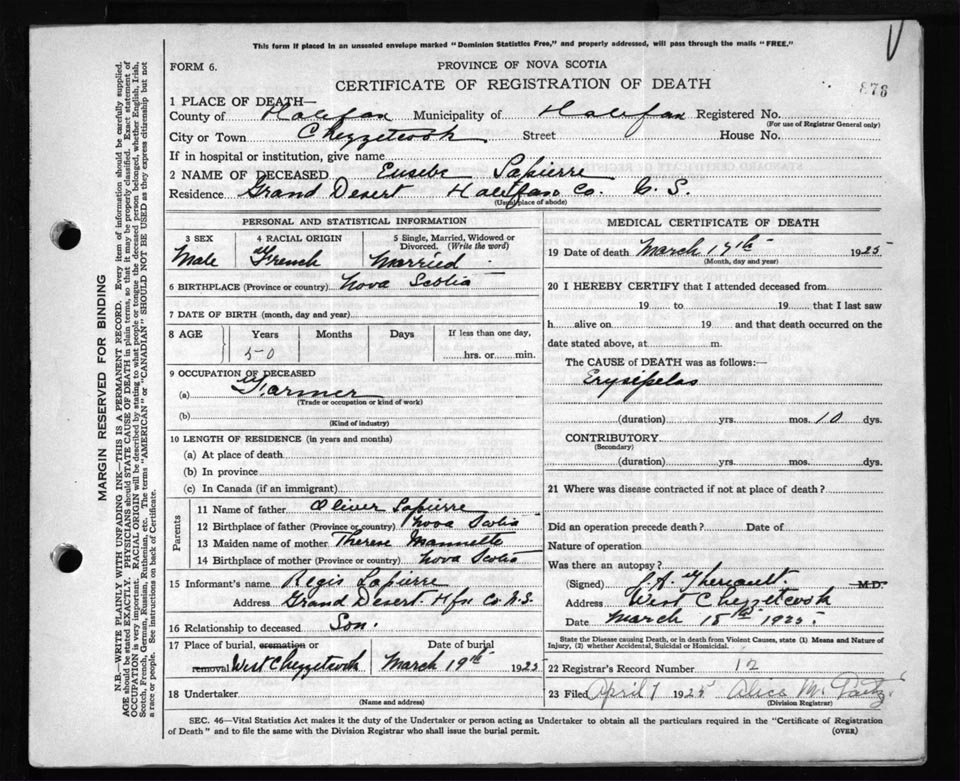 This form if placed in an unsealed envelope marked "Dominion Statistics Free," and properly addressed, will pass through the mails "FREE."
FORM 6.
PROVINCE OF NOVA SCOTIA
CERTIFICATE OF REGISTRATION OF DEATH
876
1 PLACE OF DEATH—
County of Halifax Municipality of Halifax Registered No.
(For use of Registrar General only)
City or Town Chezzetcook Street House No.
If in hospital or institution, give name
2 NAME OF DECEASED Eusebe Lapierre
Residence Grand Desert Halifax Co.
(Usual place of abode)
PERSONAL AND STATISTICAL INFORMATION
3 SEX 4 RACIAL ORIGIN 5 Single, Married, Widowed or Divorced. (Write the word)
Male French Married
6 BIRTHPLACE (Province or country) Nova Scotia
7 DATE OF BIRTH (month, day and year)
8 AGE Years Months Days If less than one day,
50 hrs. or min.
9 OCCUPATION OF DECEASED
(a) Farmer
(Trade or occupation or kind of work)
(b)
(Kind of industry)
10 LENGTH OF RESIDENCE (in years and months)
(a) At place of death
(b) In province
(c) In Canada (if an immigrant)
Parents
11 Name of father Oliver Lapierre
12 Birthplace of father (Province or country) Nova Scotia
13 Maiden name of mother Therese Mannette
14 Birthplace of mother (Province or country) Nova Scotia
15 Informant's name Regis Lapierre
Address Grand Desert Hfx Co N.S.
16 Relationship to deceased Son.
17 Place of burial, cremation or removal West Chezzetcook
Date of burial March 19th 1925
18 Undertaker
(Name and address)
MEDICAL CERTIFICATE OF DEATH
19 Date of death March 17th 1925
(Month, day and year)
20 I HEREBY CERTIFY that I attended deceased from
19 to 19 that I last saw
h alive on 19 and that death occurred on the
date stated above, at m.
The CAUSE of DEATH was as follows:—
Erysipelas
(duration) yrs. mos. 10 dys.
CONTRIBUTORY
(Secondary)
(duration) yrs. mos. dys.
21 Where was disease contracted if not at place of death?
Did an operation precede death? Date of
Nature of operation
Was there an autopsy?
(Signed) Theriault. M.D.
Address West Chezzetcook
Date March 18th 1925
State the Disease causing Death, or in death from Violent Causes, state (1) Means and Nature of
Injury, (2) whether Accidental, Suicidal or Homicidal.
22 Registrar's Record Number 12
23 Filed April 7 1925 Alice M.
(Division Registrar)
SEC. 46—Vital Statistics Act makes it the duty of the Undertaker or person acting as Undertaker to obtain all the particulars required in the "Certificate of Registration
of Death" and to file the same with the Division Registrar who shall issue the burial permit. (OVER)
MARGIN RESERVED FOR BINDING
N.B.—WRITE PLAINLY WITH UNFADING INK—THIS IS A PERMANENT RECORD. Every item of information should be carefully supplied.
AGE should be stated EXACTLY. PHYSICIANS should STATE CAUSE OF DEATH in plain terms, so that it may be properly classified. Exact statement of
OCCUPATION is very important. RACIAL ORIGIN will be described by stating to what people or tongue the deceased person belonged, whether English, Irish,
Scotch, French, German, Russian, Ruthenian, etc. The terms "AMERICAN" or "CANADIAN" SHOULD NOT BE USED as they express citizenship but not
a race or people. See instructions on back of Certificate.